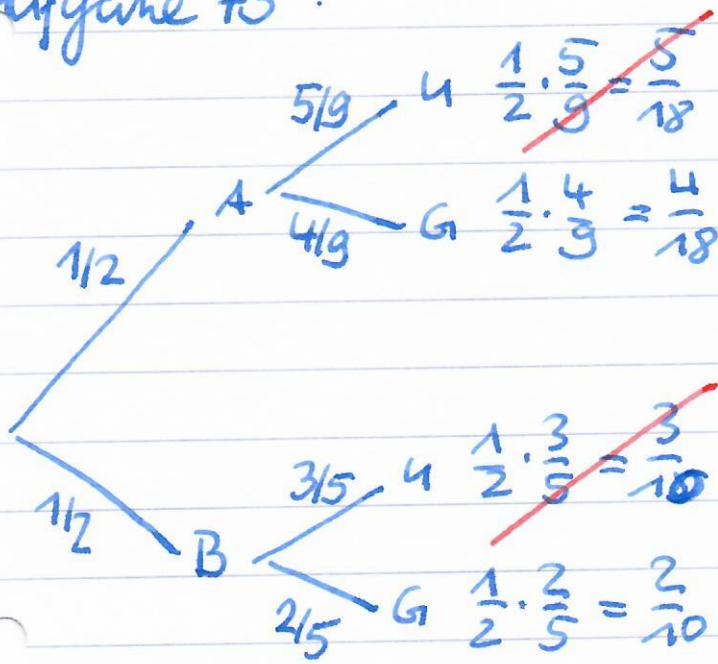 Aufgabe
5/9 U 1/2 · 5/9 = 5/18
A
4/9 G 1/2 · 4/9 = 4/18
1/2
3/5 U 1/2 · 3/5 = 3/10
1/2
B
2/5 G 1/2 · 2/5 = 2/10